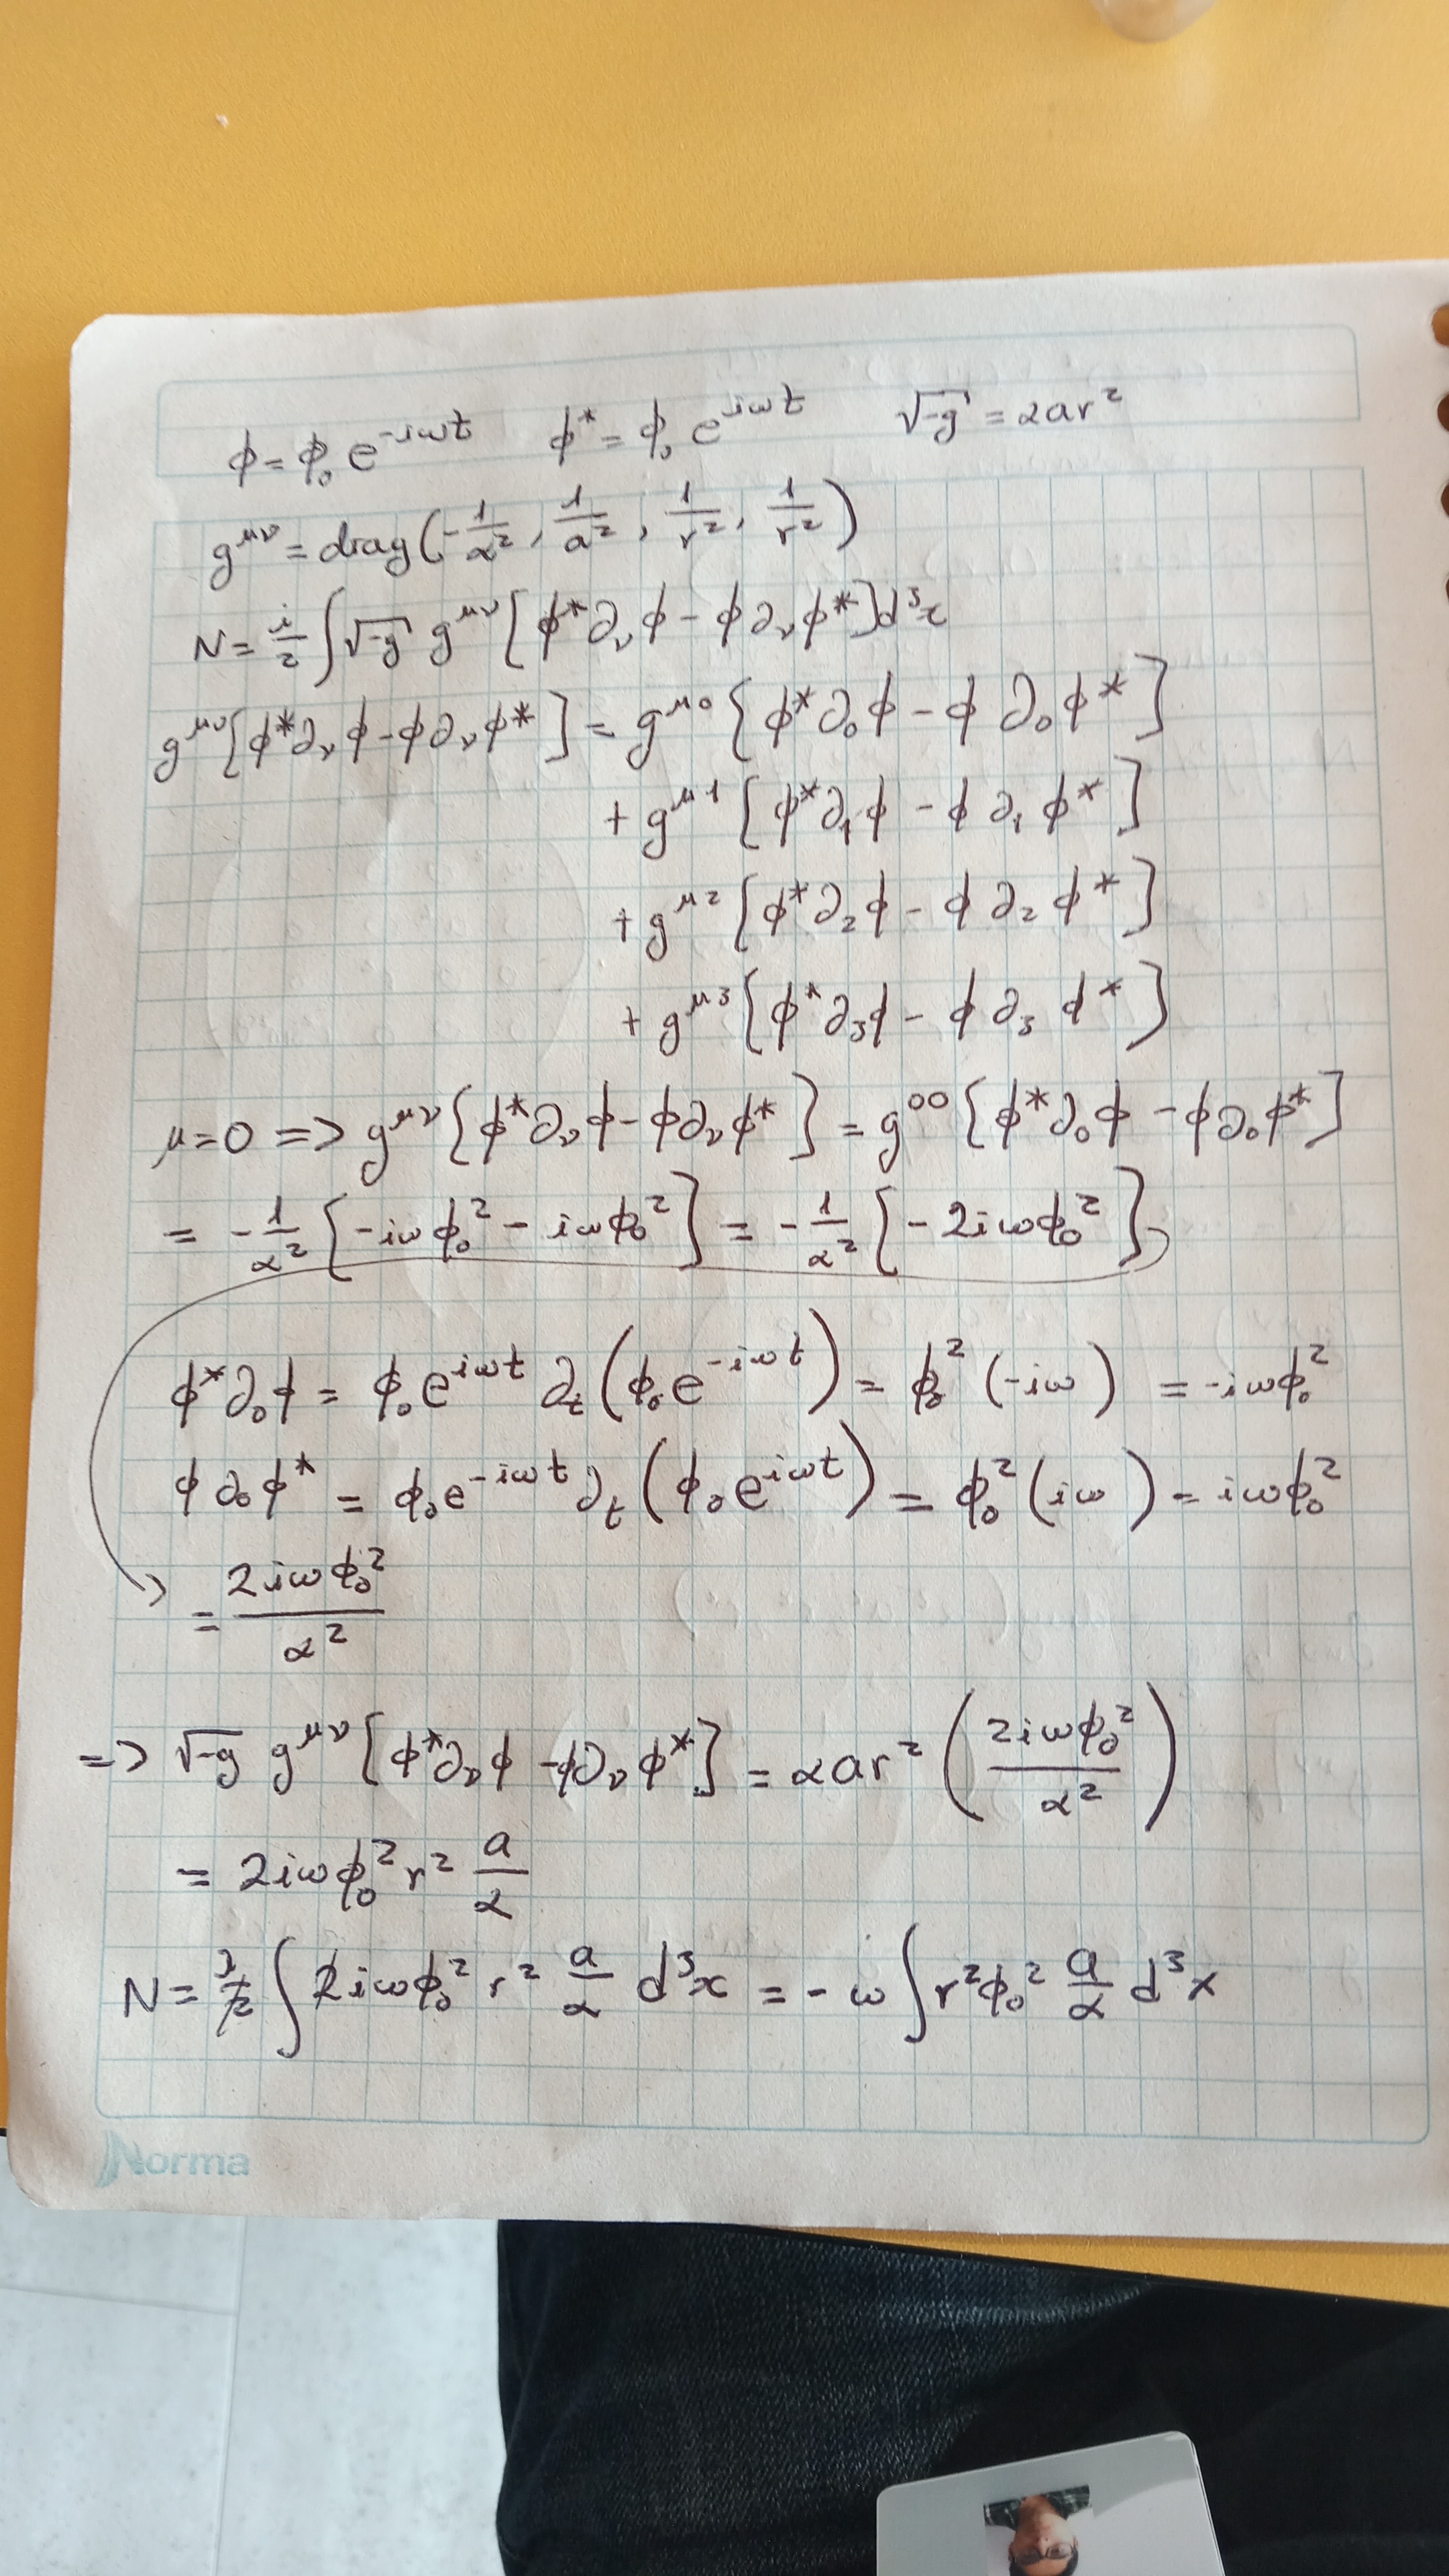 ϕ = ϕ₀ e^{-iωt}   ϕ* = ϕ₀ e^{iωt}   √-g = αar²
g^{μν} = diag(-1/α², 1/a², 1/r², 1/r²)
N = i/2 ∫ √-g g^{μν} [ϕ*∂_νϕ - ϕ∂_νϕ*] d³x
g^{μν}[ϕ*∂_νϕ - ϕ∂_νϕ*] = g^{μ0} [ϕ*∂₀ϕ - ϕ ∂₀ϕ*]
+ g^{μ1} [ϕ*∂₁ϕ - ϕ ∂₁ϕ*]
+ g^{μ2} [ϕ*∂₂ϕ - ϕ ∂₂ϕ*]
+ g^{μ3} [ϕ*∂₃ϕ - ϕ ∂₃ϕ*]
μ=0 => g^{μν} [ϕ*∂_νϕ - ϕ∂_νϕ*] = g^{00} [ϕ*∂₀ϕ - ϕ∂₀ϕ*]
= -1/α² [-iωϕ₀² - iωϕ₀²] = -1/α² [-2iωϕ₀²]
ϕ*∂₀ϕ = ϕ₀e^{iωt} ∂_t (ϕ₀e^{-iωt}) = ϕ₀² (-iω) = -iωϕ₀²
ϕ∂₀ϕ* = ϕ₀e^{-iωt} ∂_t (ϕ₀e^{iωt}) = ϕ₀² (iω) = iωϕ₀²
= 2iωϕ₀²/α²
=> √-g g^{μν} [ϕ*∂_νϕ - ϕ∂_νϕ*] = αar² (2iωϕ₀²/α²)
= 2iωϕ₀² r² a/α
N = i/2 ∫ 2iωϕ₀² r² a/α d³x = -ω ∫ r²ϕ₀² a/α d³x
Norma